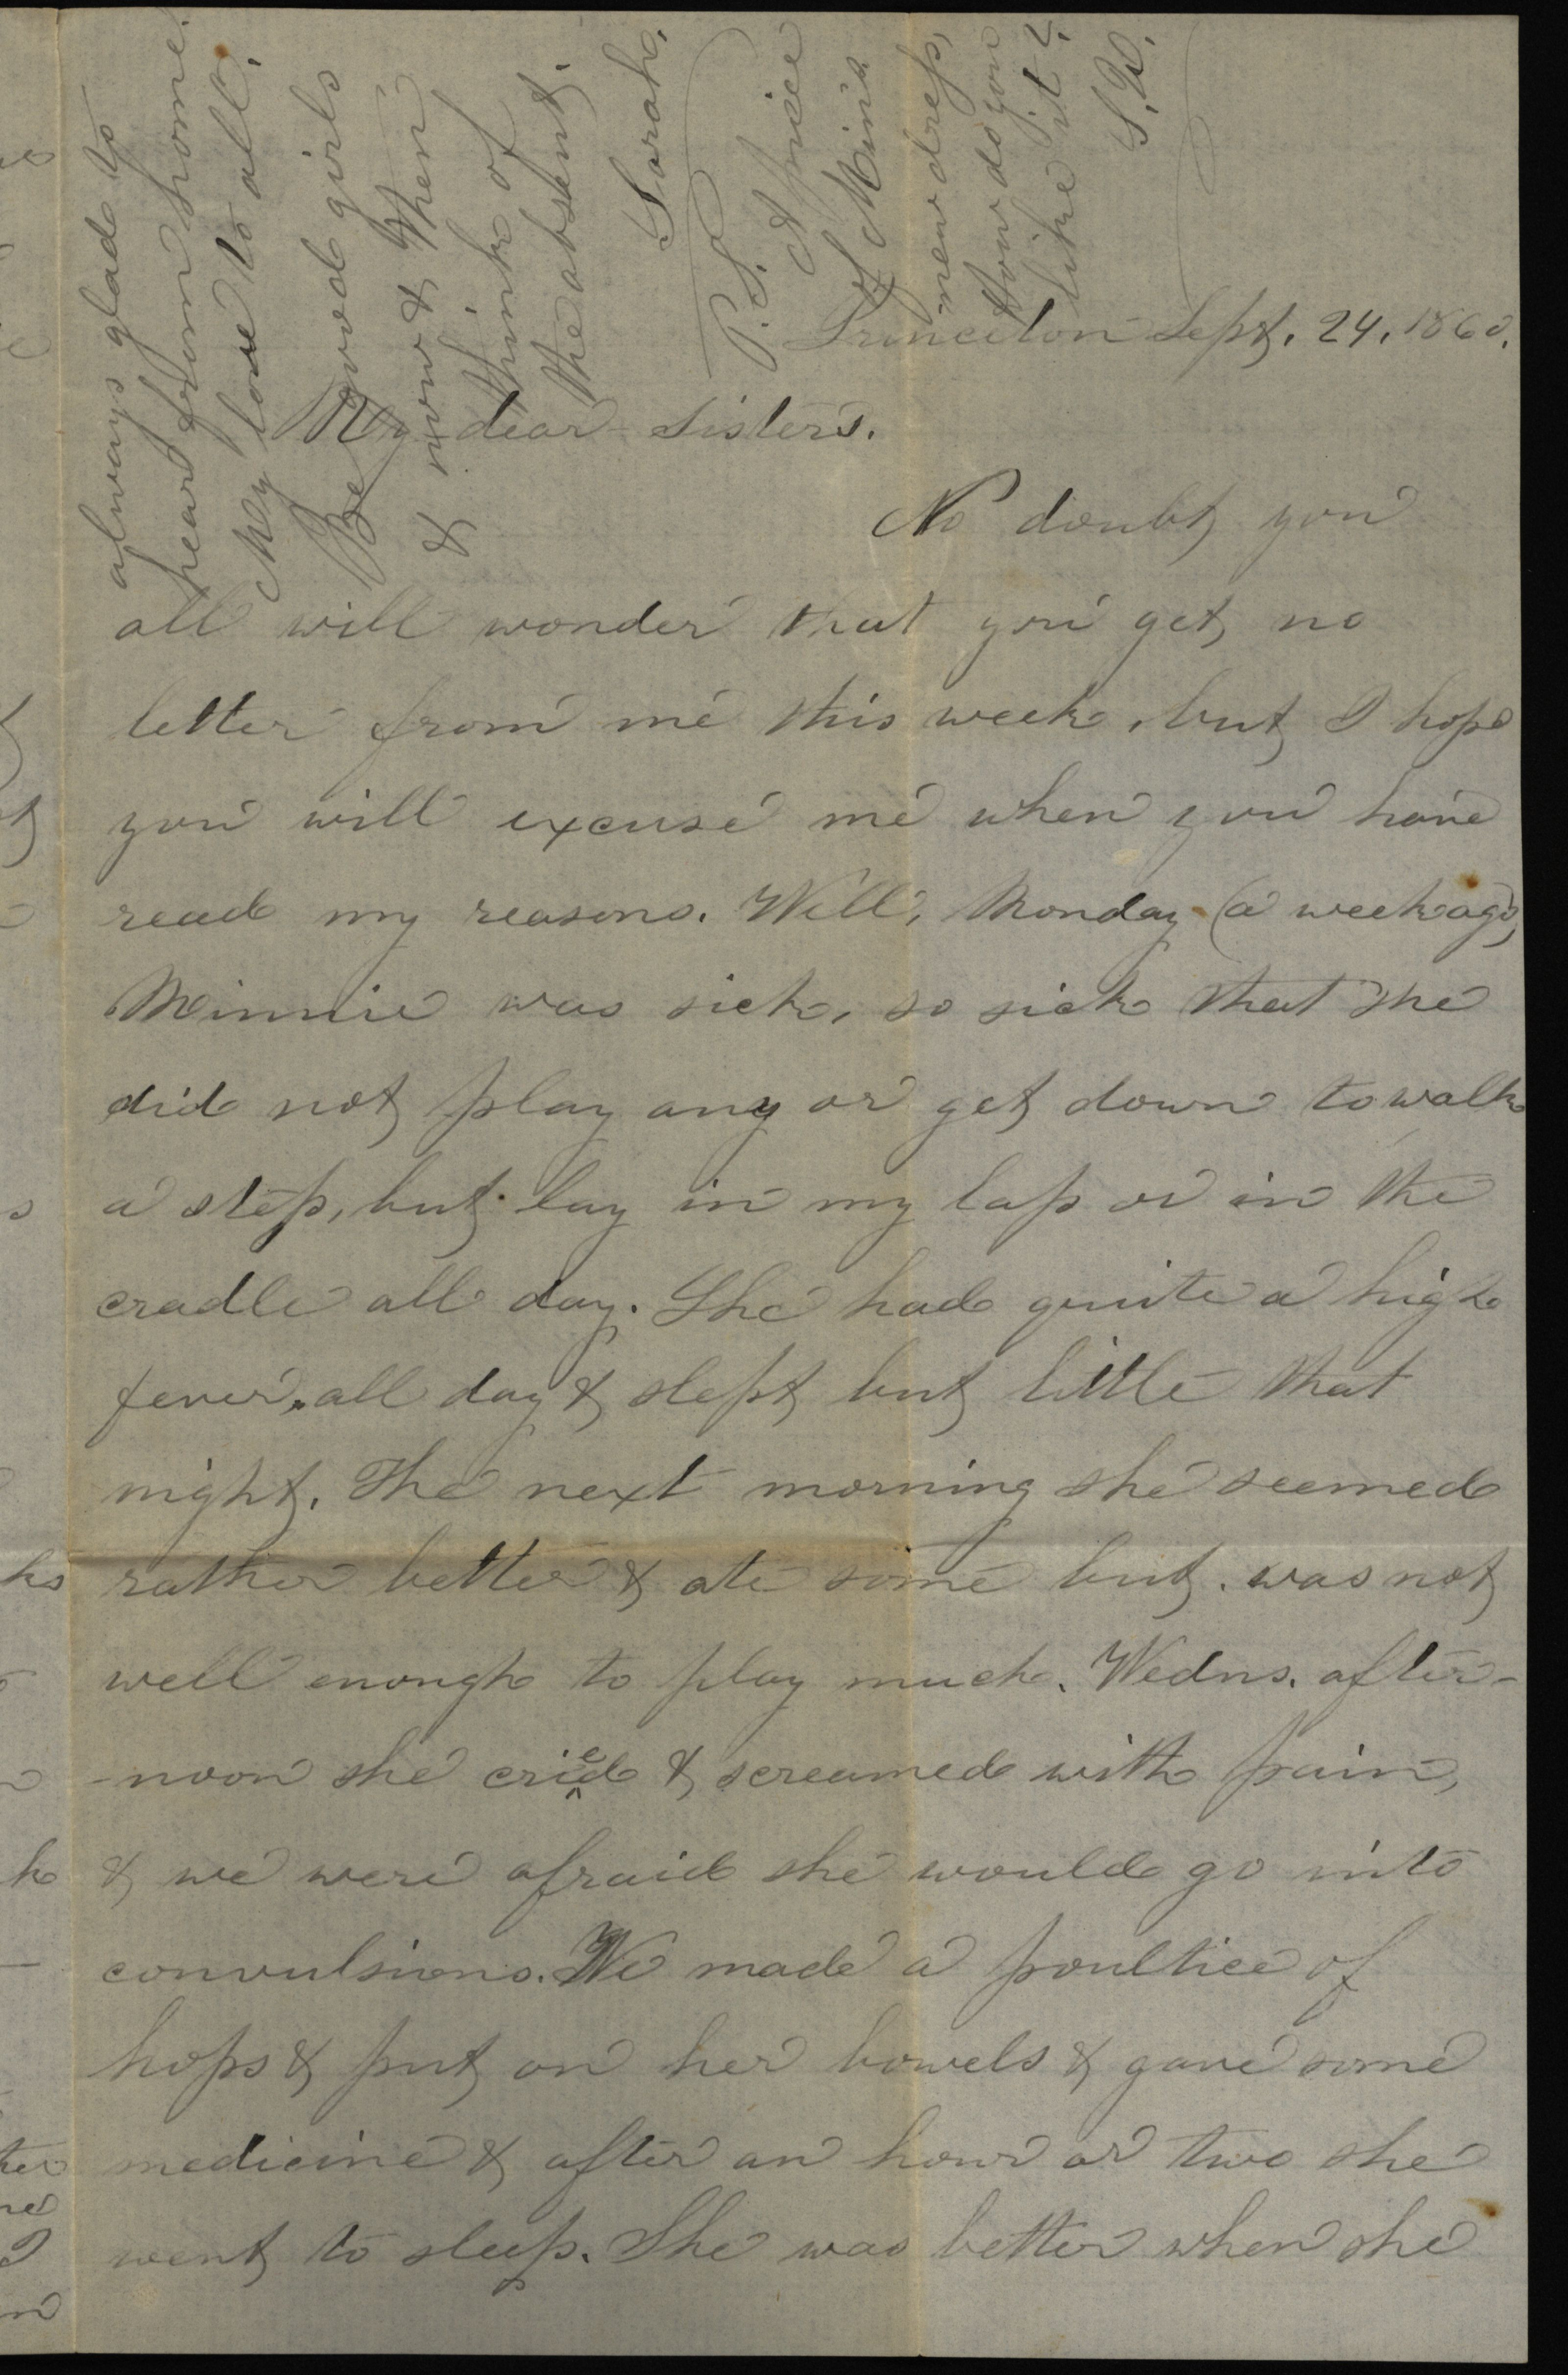 Princeton Sept. 24, 1860.
My dear sisters.
No doubt you
all will wonder that you get no
letter from me this week, but I hope
you will excuse me when you have
read my reasons. Well, Monday (a week ago)
Minnie was sick, so sick that she
did not play any or get down to walk
a step, but lay in my lap or in the
cradle all day. She had quite a high
fever, all day & slept but little that
night. The next morning she seemed
rather better & ate some but was not
well enough to play much. Wedns. after-
-noon she cried & screamed with pain,
& we were afraid she would go into
convulsions. We made a poultice of
hops & put on her bowels & gave some
medicine & after an hour or two she
went to sleep. She was better when she
always glad to
hear from home.
My love to all.
Be good girls
& now & then
think of
the absent.
Sarah.
P.S. A piece
of Minnie
new dress,
How do you
like it?